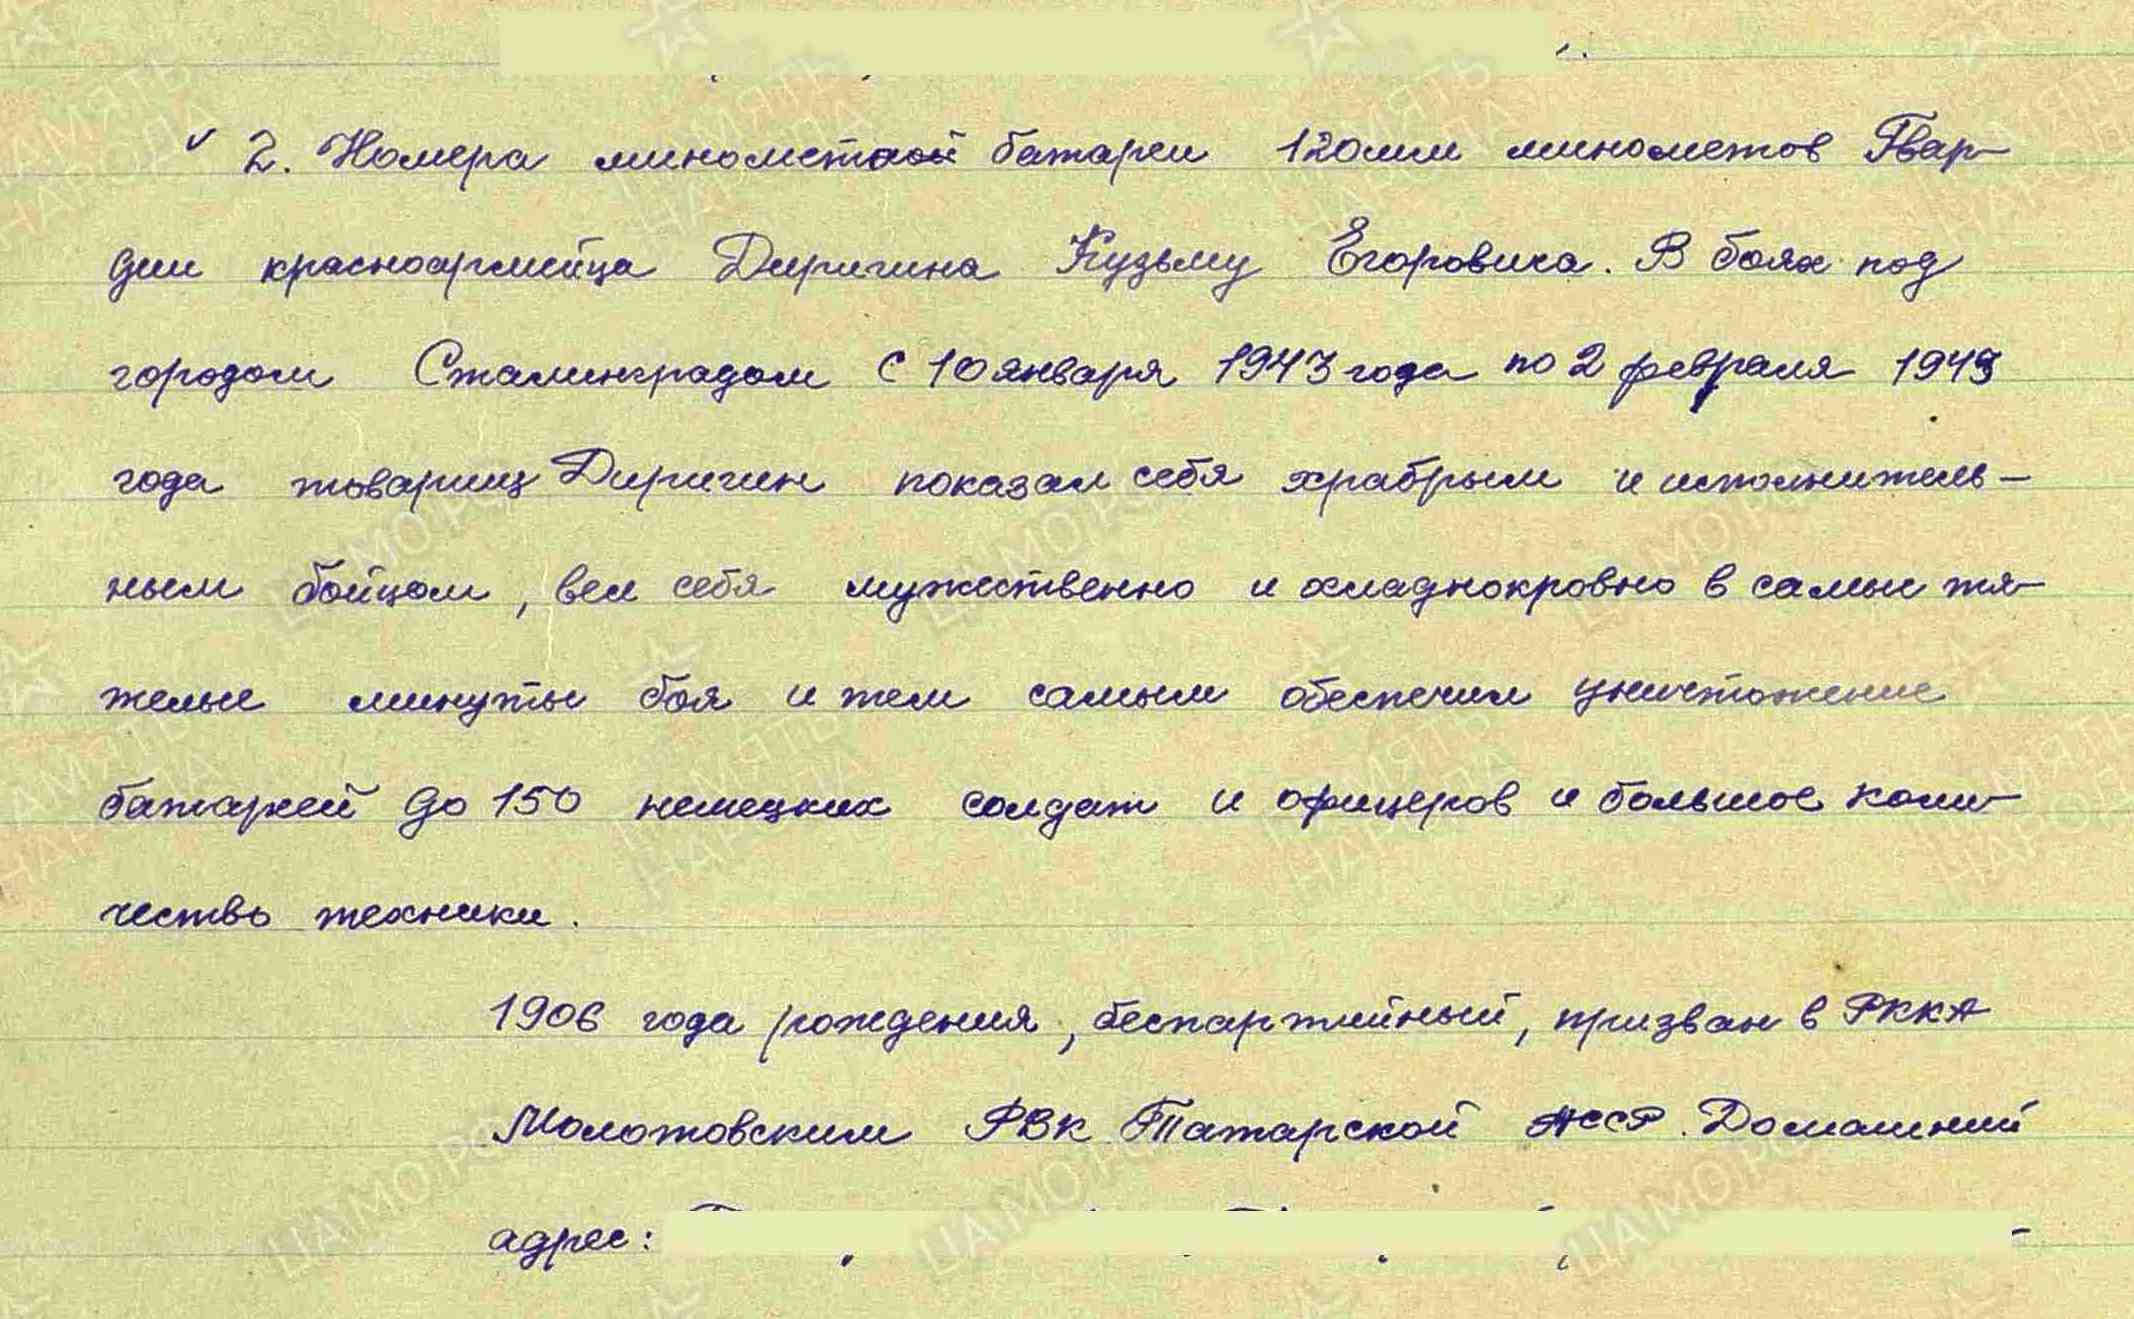 2. Номера минометной батареи 120мм минометов Гвар-
дии красноармейца Диригина Кузьму Егоровича. В боях под
городом Сталинградом с 10 января 1943 года по 2 февраля 1943
года товарищ Диригин показал себя храбрым и исполнитель-
ным бойцом, вел себя мужественно и хладнокровно в самые тя-
желые минуты боя и тем самым обеспечил уничтожение
батареей до 150 немецких солдат и офицеров и большое коли-
чество техники.
1906 года рождения, беспартийный, призван в РККА
Молотовским РВК Татарской АССР. Домашний
адрес: